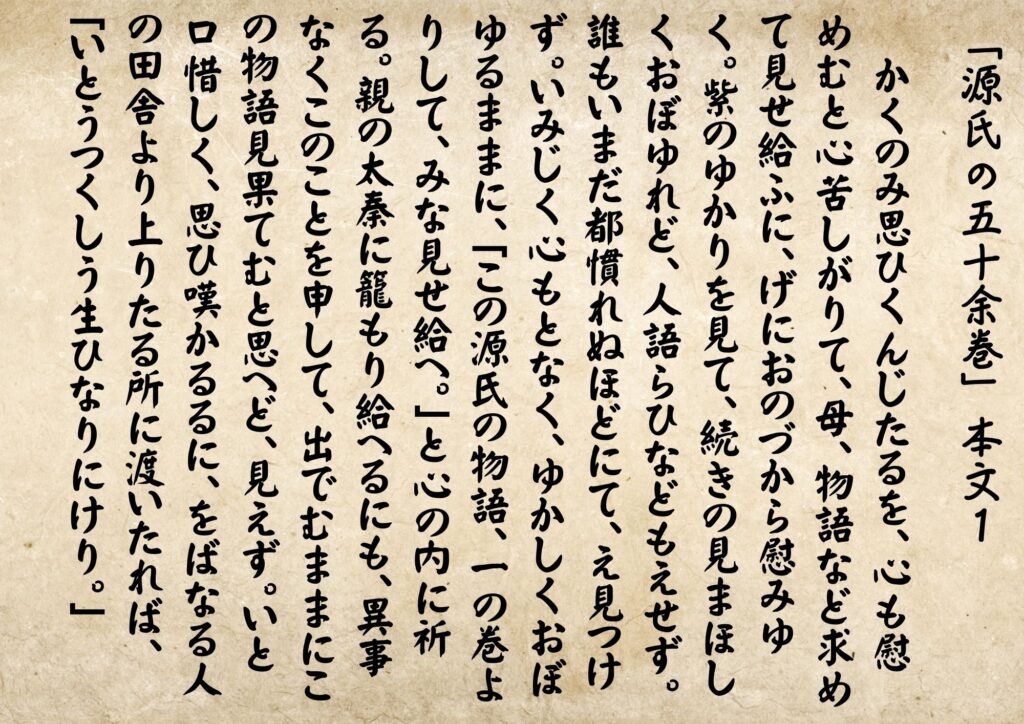 「源氏の五十余巻」 本文1
かくのみ思ひくんじたるを、心も慰
めむと心苦しがりて、母、物語など求め
て見せ給ふに、げにおのづから慰みゆ
く。紫のゆかりを見て、続きの見まほし
くおぼゆれど、人語らひなどもえせず。
誰もいまだ都慣れぬほどにて、え見つけ
ず。いみじく心もとなく、ゆかしくおぼ
ゆるままに、「この源氏の物語、一の巻よ
りして、みな見せ給へ。」と心の内に祈
る。親の太秦に籠もり給へるにも、異事
なくこのことを申して、出でむままにこ
の物語見果てむと思へど、見えず。いと
口惜しく、思ひ嘆かるるに、をばなる人
の田舎より上りたる所に渡いたれば、
「いとうつくしう生ひなりにけり。」